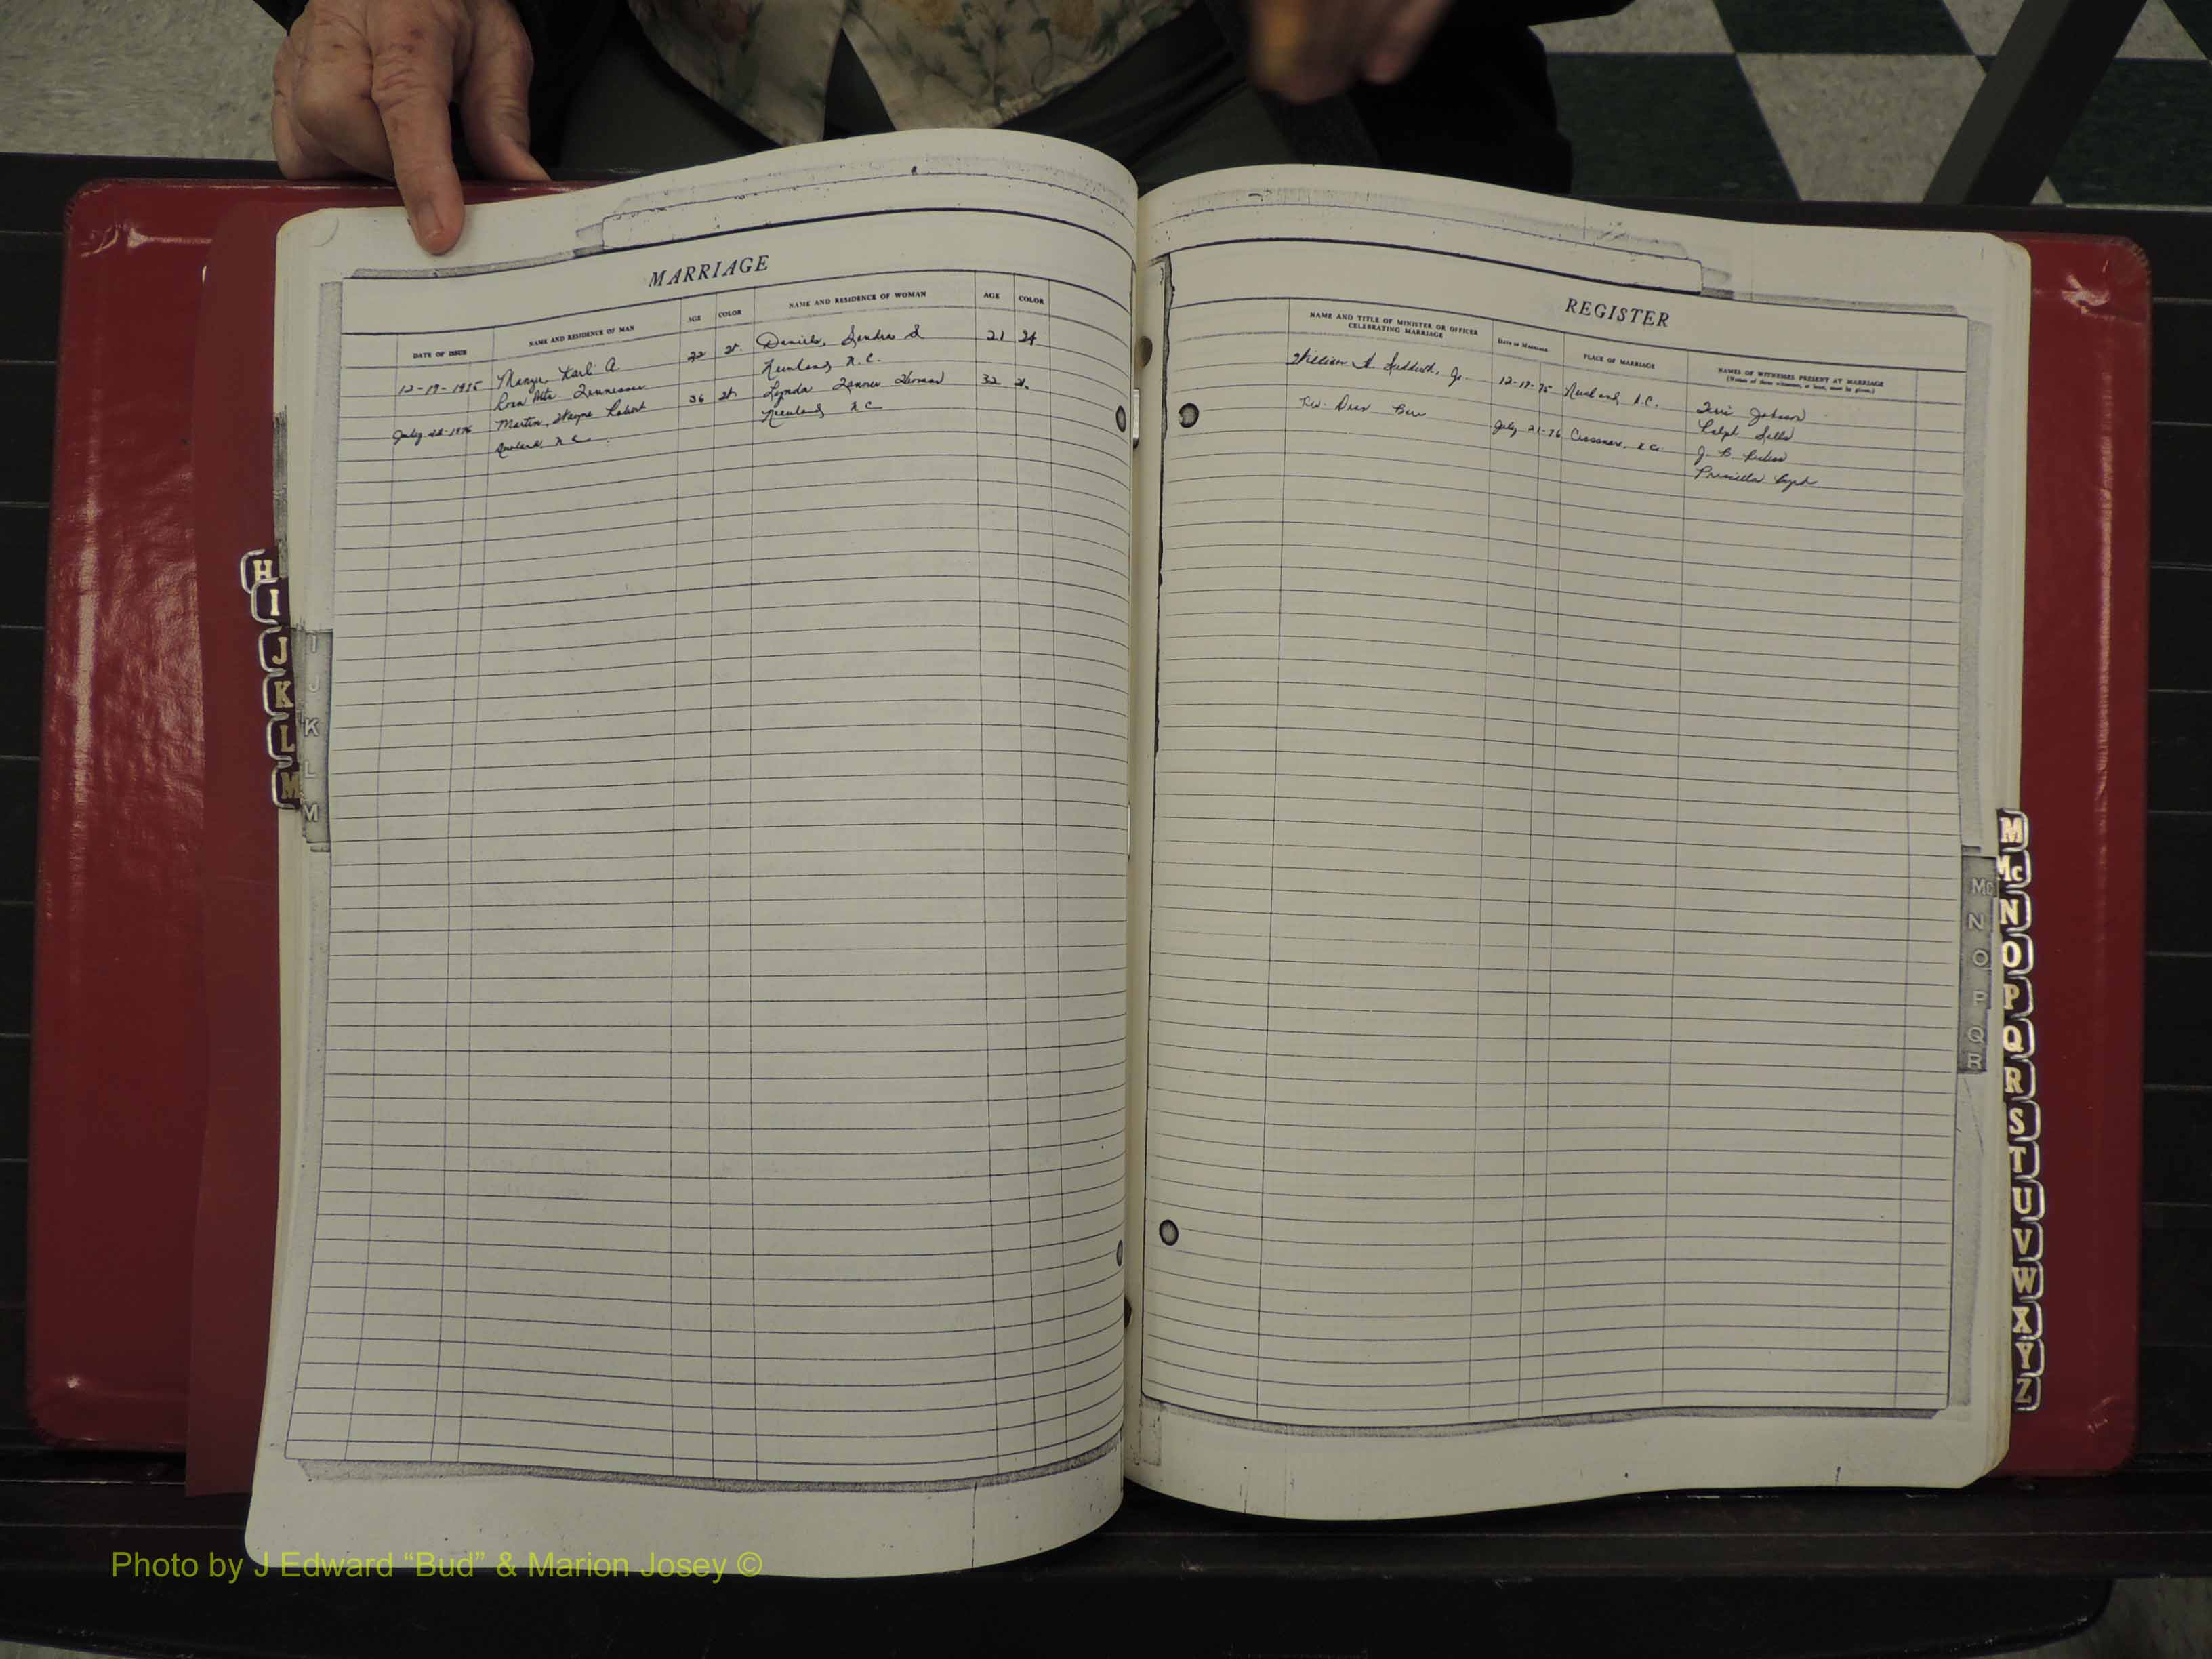 MARRIAGE
DATE OF ISSUE NAME AND RESIDENCE OF MAN AGE COLOR NAME AND RESIDENCE OF WOMAN AGE COLOR
12-17-1975 Karl A. 22 W. Daniels, Sandra S 21 W
Tennessee Newland N.C.
July 1976 Martin, Wayne Robert 36 W. Lynda Thomas 32 W.
Newland N C Newland N C
REGISTER
NAME AND TITLE OF MINISTER OR OFFICER CELEBRATING MARRIAGE DATE OF MARRIAGE PLACE OF MARRIAGE NAMES OF WITNESSES PRESENT AT MARRIAGE
(Names of three witnesses, at least, must be given.)
William A. Sudduth, Jr. 12-17-75 Newland N.C. Terri Johnson
Ralph
Rev. July 21-76 Crossnore, N.C. J. B.
Priscilla Byrd
H
I
J
K
L
M
I
J
K
L
M
M
Mc
N
O
P
Q
R
S
T
U
V
W
X
Y
Z
Mc
N
O
P
Q
R
Photo by J Edward “Bud” & Marion Josey ©